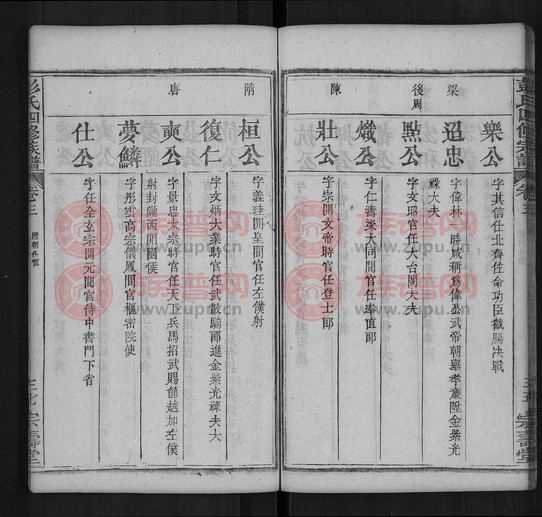 彭氏四修宗譜
卷三
三五
宗壽堂
樂公
字其信仕北齊任命功臣截腸決戰
梁
迢忠
字偉林一時咸稱為偉公武帝朝舉孝廉陞金紫光
祿大夫
後周
點公
字文昭官任大台閣大夫
熾公
字仁壽梁大同間官任奉直郎
陳
壯公
字宗開文帝時官任登士郎
隋
桓公
字義珪開皇間官任左僕射
復仁
字文炳大業時官任武散騎郎進金紫光祿大夫
唐
奭公
字景忠太宗時官任天下兵馬招武賜節越加左僕
射封隴西開國侯
夢鱗
字彤雲高宗儀鳳間官樞密院使
仕公
字任全玄宗開元間官侍中書門下省
彭氏四修族譜
卷三
歷朝仕宦
宗壽堂
族譜网
www.zupu.cn